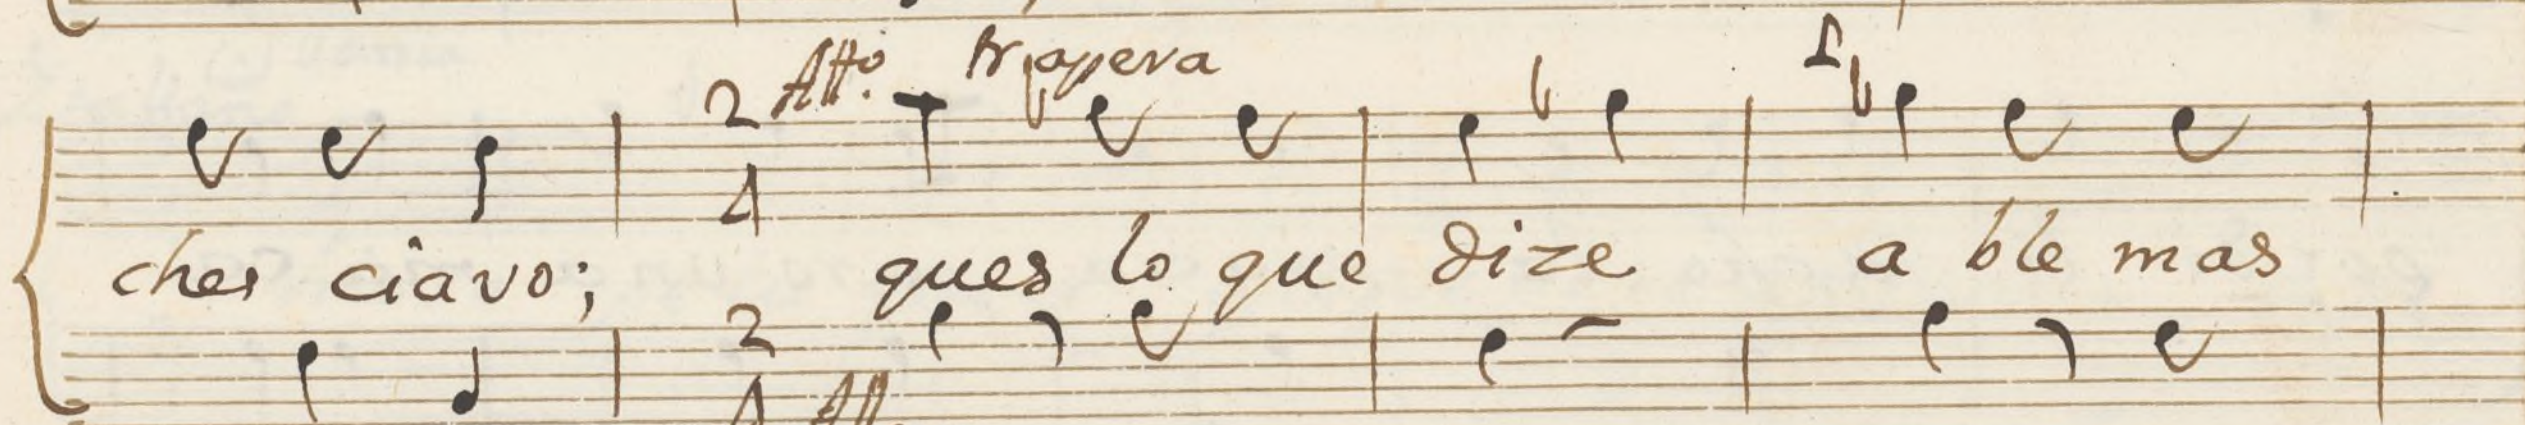 Allo. trapera
2
4
ches ciavo; ques lo que dize a ble mas
2
4 All.